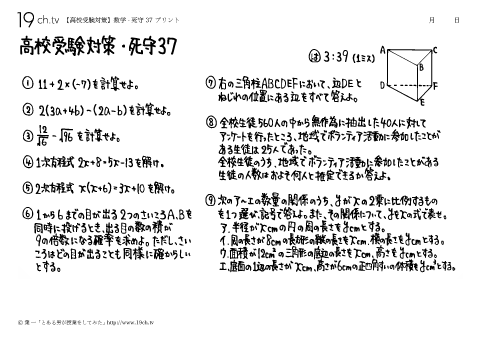 19ch.tv 【高校受験対策】数学・死守37プリント 月 日
高校受験対策・死守37
① 11+2×(-7)を計算せよ。
② 2(3a+4b)-(2a-b)を計算せよ。
③ 12/√6 - √96 を計算せよ。
④ 1次方程式 2x+8=5x-13を解け。
⑤ 2次方程式 x(x+6)=3x+10を解け。
⑥ 1から6までの目が出る2つのさいころA、Bを
同時に投げるとき、出る目の数の積が
9の倍数になる確率を求めよ。ただし、さい
ころはどの目が出ることも同様に確からしい
とする。
3:39 (1ミス)
A C
B
D F
E
⑦ 右の三角柱ABCDEFにおいて、辺DEと
ねじれの位置にある辺をすべて答えよ。
⑧ 全校生徒560人の中から無作為に抽出した40人に対して
アンケートを行ったところ、地域でボランティア活動に参加したことが
ある生徒は25人であった。
全校生徒のうち、地域でボランティア活動に参加したことがある
生徒の人数はおよそ何人と推定できるか答えよ。
⑨ 次のア〜エの数量の関係のうち、yがxの2乗に比例するもの
を1つ選び、記号で答えよ。また、その関係について、yをxの式で表せ。
ア.半径がxcmの円の周の長さをycmとする。
イ.周の長さが8cmの長方形の縦の長さをxcm、横の長さをycmとする。
ウ.面積が12cm²の三角形の底辺の長さをxcm、高さをycmとする。
エ.底面の1辺の長さがxcm、高さが6cmの正四角すいの体積をycm³とする。
© 葉一「とある男が授業をしてみた」http://www.19ch.tv